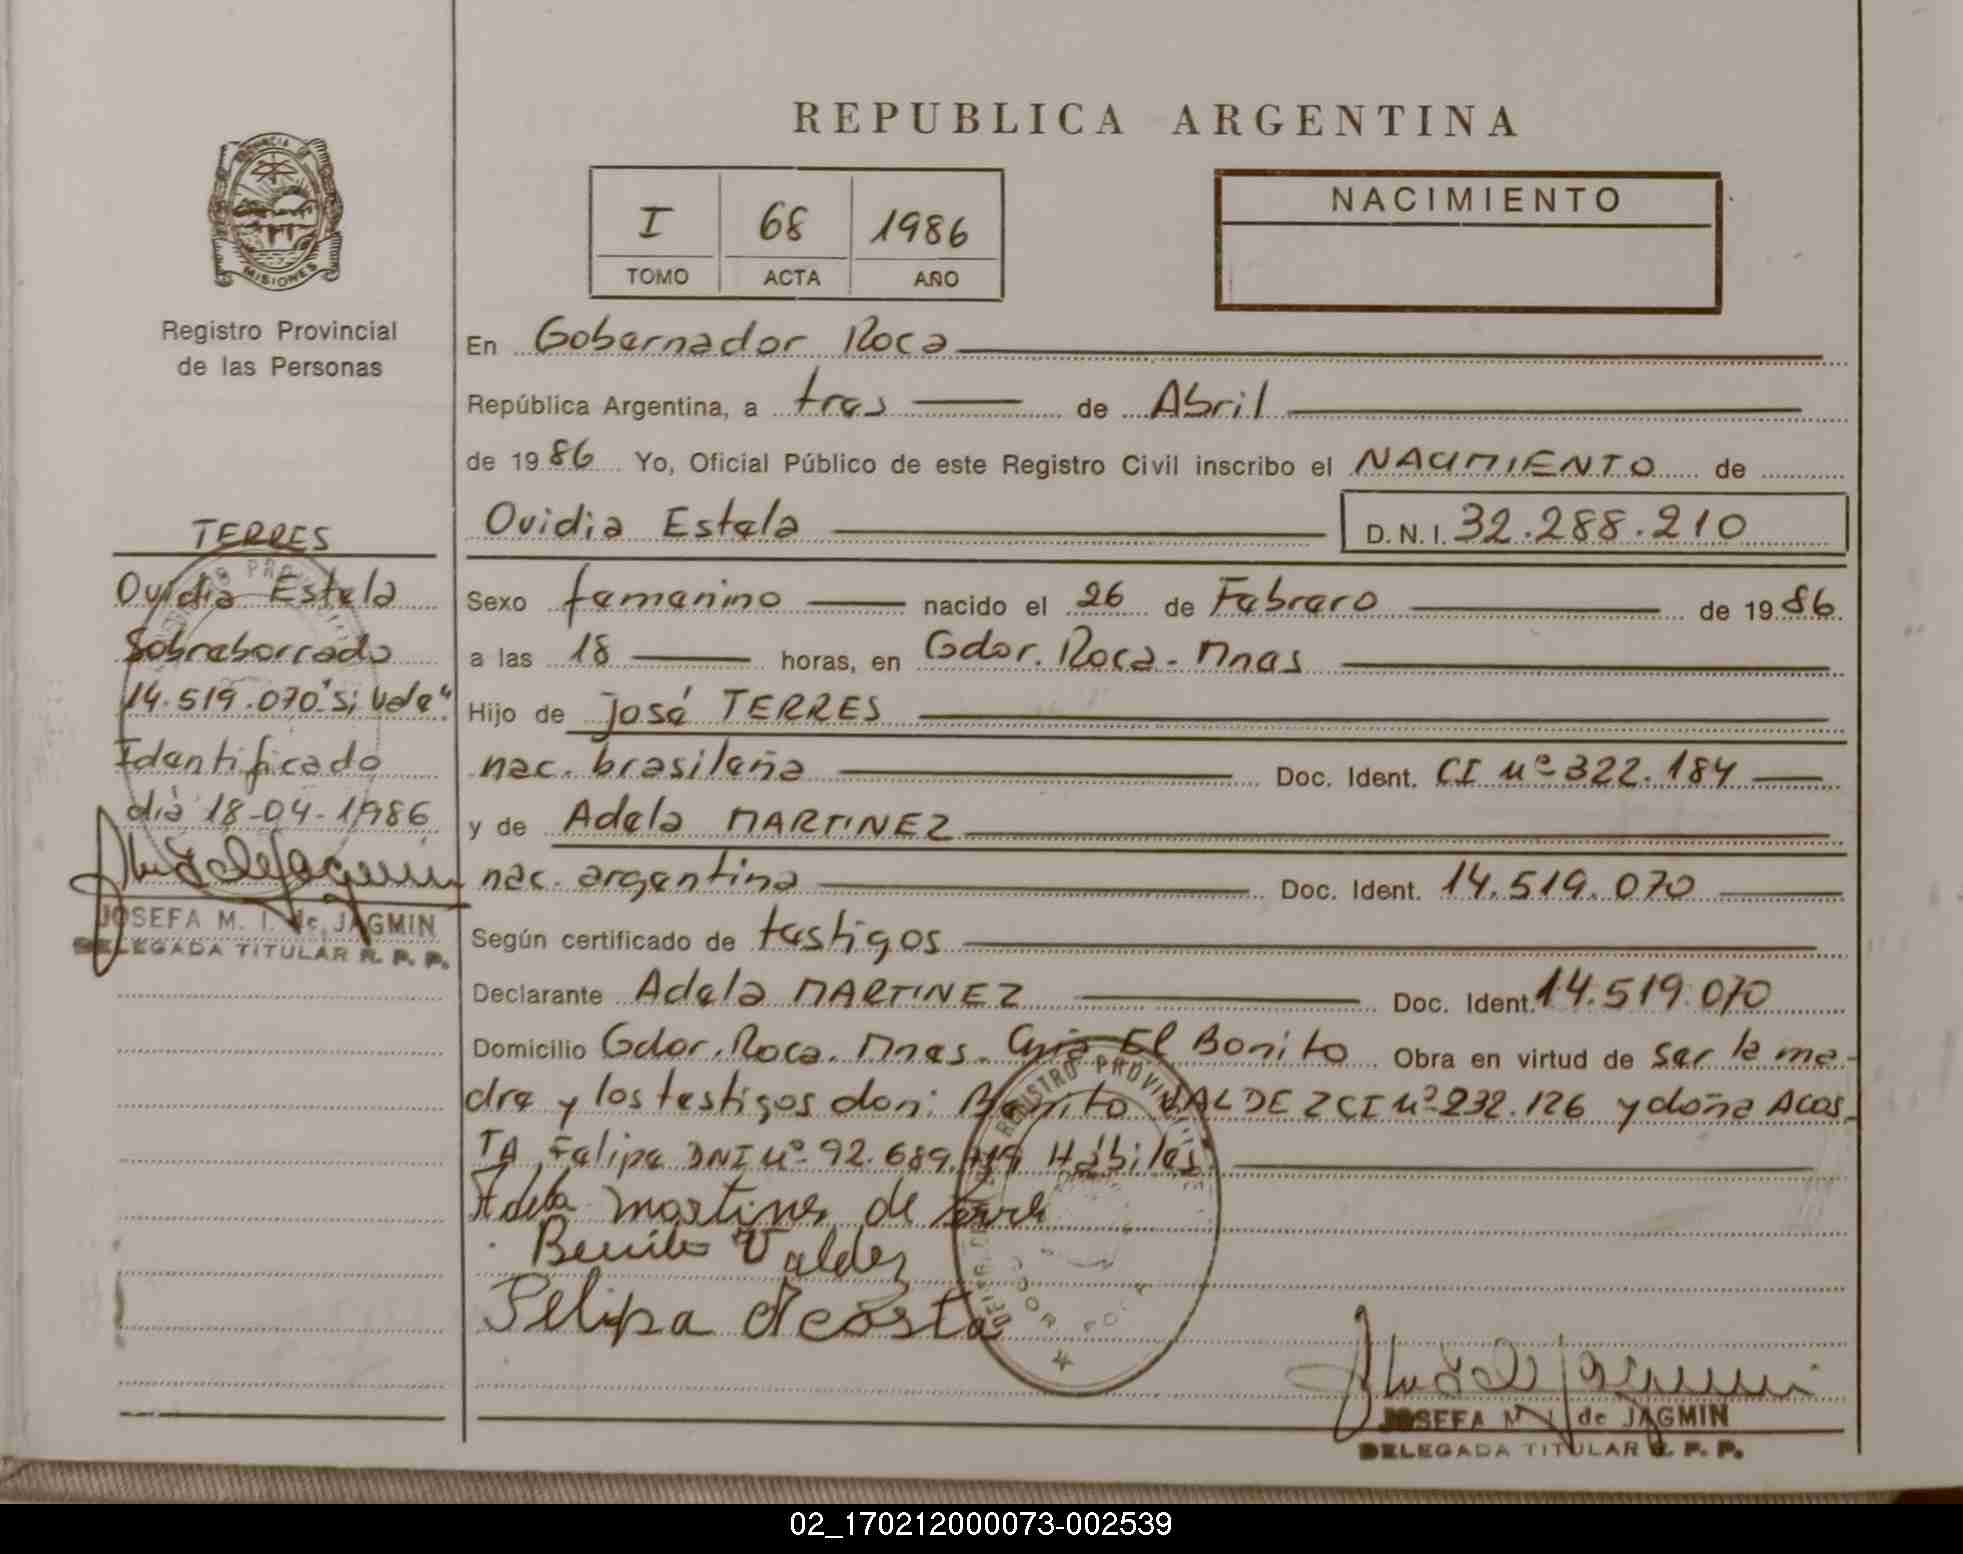 REPUBLICA ARGENTINA
PROVINCIA DE
MISIONES
Registro Provincial
de las Personas
I 68 1986
TOMO ACTA AÑO
NACIMIENTO
En Gobernador Roca
República Argentina, a tres de Abril
de 1986 Yo, Oficial Público de este Registro Civil inscribo el NACIMIENTO de
Ovidia Estela D.N.I. 32.288.210
Sexo femenino nacido el 26 de Febrero de 1986
a las 18 horas, en Gdor. Roca - Mnes
Hijo de José TERRES
nac. brasileña Doc. Ident. CI Nº 322.184
y de Adela MARTINEZ
nac. argentina Doc. Ident. 14.519.070
Según certificado de testigos
Declarante Adela MARTINEZ Doc. Ident. 14.519.070
Domicilio Gdor. Roca. Mnes. El Bonito Obra en virtud de ser la ma-
dre y los testigos don: Benito VALDEZ CI Nº 232.126 y doña ACOS-
TA Felipa DNI Nº 92.689. Hábiles
Adela Martines de
Benito Valdez
Felipa Acosta
JOSEFA M. I. de JAGMIN
DELEGADA TITULAR R. P. P.
TERRES
Ovidia Estela
Sobreborrado
14.519.070 "si vale"
Identificado
día 18-04-1986
JOSEFA M. I. de JAGMIN
DELEGADA TITULAR R. P. P.
REGISTRO PROVINCIAL
02_170212000073-002539